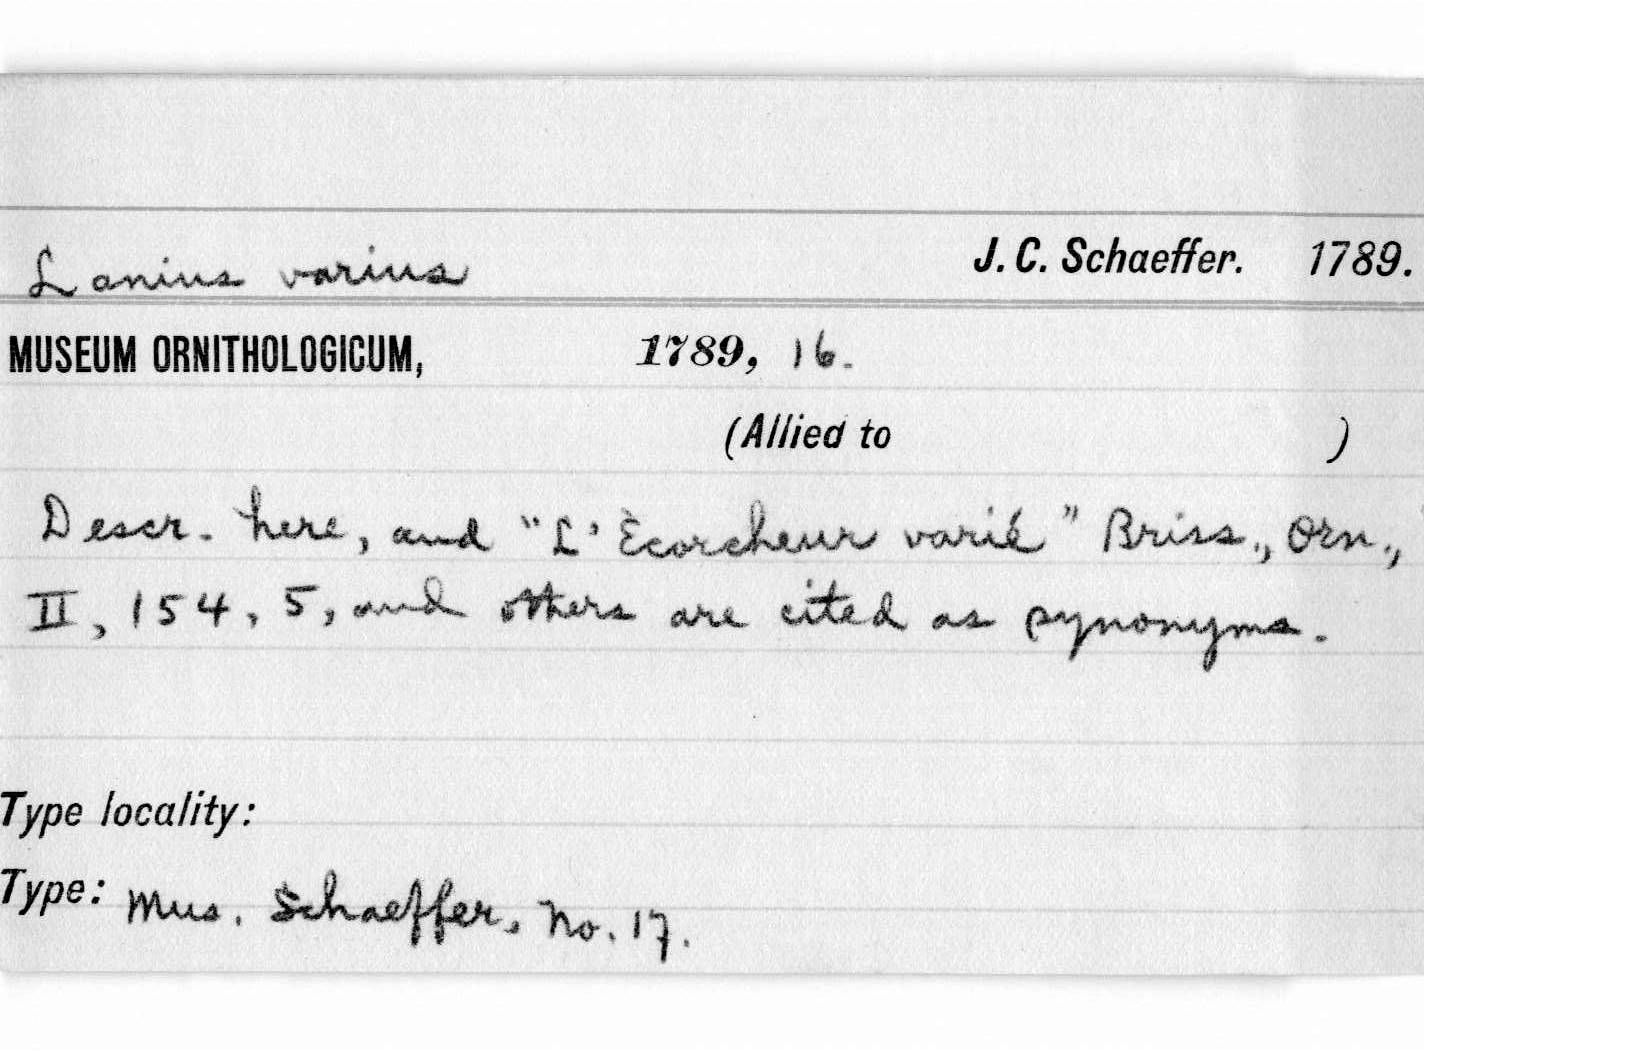 Lanius varius J. C. Schaeffer. 1789.
MUSEUM ORNITHOLOGICUM, 1789, 16.
(Allied to )
Descr. here, and "L'Ècorcheur varié" Briss., Orn.,
II, 154, 5, and others are cited as synonyms.
Type locality:
Type: Mus. Schaeffer, No. 17.